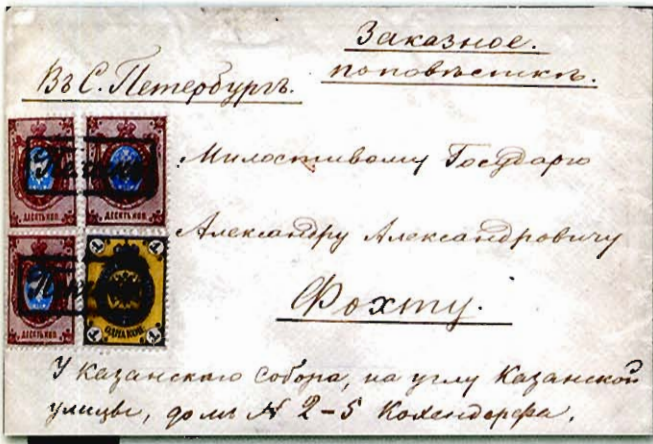 Заказное.
поповѣсткѣ.
Въ С. Петербургъ.
Милостивому Государю
Александру Александровичу
Фохту.
У Казанскаго Собора, на углу Казанской
улицы, домъ № 2-5 Кохендерфа.
ДЕСЯТЬ КОП.
ДЕСЯТЬ КОП.
ДЕСЯТЬ КОП.
1 1
ОДНА КОП.
1 1